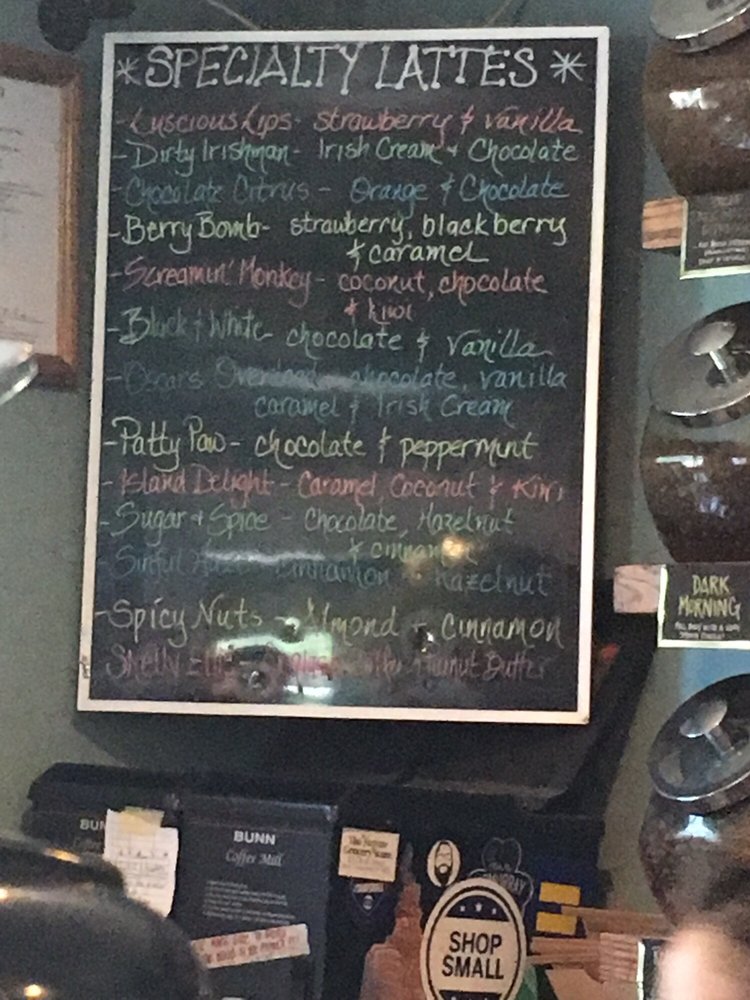 * SPECIALTY LATTES *
- Luscious Lips - strawberry & vanilla
- Dirty Irishman - Irish Cream + Chocolate
- Chocolate Citrus - Orange & Chocolate
- Berry Bomb - strawberry, blackberry
& caramel
- Screamin' Monkey - coconut, chocolate
& kiwi
- Black & White - chocolate & vanilla
- Oscars Overload - chocolate, vanilla
caramel & Irish Cream
- Patty Paw - chocolate & peppermint
- Island Delight - Caramel, Coconut & Kiwi
- Sugar + Spice - Chocolate, Hazelnut
& cinnamon
- Sinful - cinnamon + hazelnut
- Spicy Nuts - Almond + cinnamon
Peanut Butter
DARK
MORNING
BUNN
Coffee Mill
SHOP
SMALL